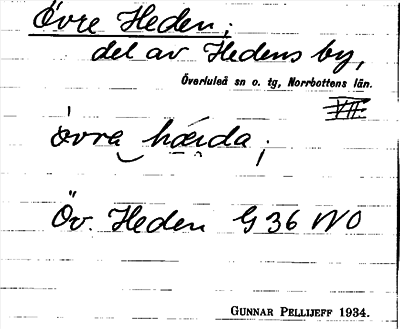 Övre Heden;
del av Hedens by,
Överluleå sn o. tg, Norrbottens län.
VII.
övra hæ̂rda;
Öv. Heden G 36 NO
GUNNAR PELLIJEFF 1934.